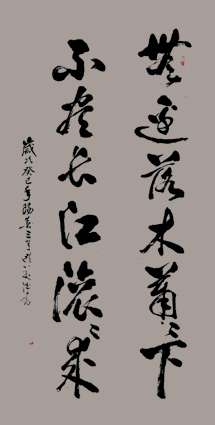 無邊落木蕭〻下
不盡長江滾〻來
歲次癸巳年